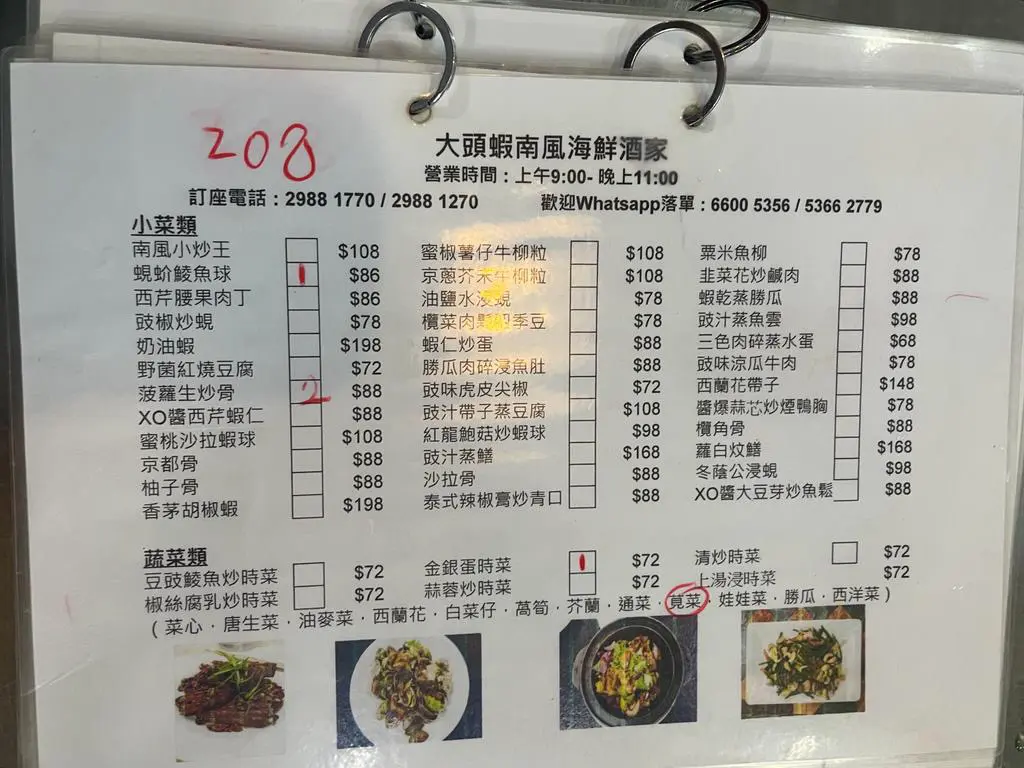 208
大頭蝦南風海鮮酒家
營業時間：上午9:00- 晚上11:00
訂座電話：2988 1770 / 2988 1270 歡迎Whatsapp落單：6600 5356 / 5366 2779
小菜類
南風小炒王 $108 蜜椒薯仔牛柳粒 $108 粟米魚柳 $78
蜆蚧鯪魚球 1 $86 京蔥芥末牛柳粒 $108 韭菜花炒鹹肉 $88
西芹腰果肉丁 $86 油鹽水浸蜆 $78 蝦乾蒸勝瓜 $88
豉椒炒蜆 $78 欖菜肉鬆季豆 $78 豉汁蒸魚雲 $98
奶油蝦 $198 蝦仁炒蛋 $88 三色肉碎蒸水蛋 $68
野菌紅燒豆腐 $72 勝瓜肉碎浸魚肚 $88 豉味涼瓜牛肉 $78
菠蘿生炒骨 2 $88 豉味虎皮尖椒 $72 西蘭花帶子 $148
XO醬西芹蝦仁 $88 豉汁帶子蒸豆腐 $108 醬爆蒜芯炒煙鴨胸 $78
蜜桃沙拉蝦球 $108 紅龍鮑菇炒蝦球 $98 欖角骨 $88
京都骨 $88 豉汁蒸鱔 $168 蘿白炆鱔 $168
柚子骨 $88 沙拉骨 $88 冬蔭公浸蜆 $98
香茅胡椒蝦 $198 泰式辣椒膏炒青口 $88 XO醬大豆芽炒魚鬆 $88
蔬菜類
豆豉鯪魚炒時菜 $72 金銀蛋時菜 1 $72 清炒時菜 $72
椒絲腐乳炒時菜 $72 蒜蓉炒時菜 $72 上湯浸時菜 $72
（菜心．唐生菜．油麥菜．西蘭花．白菜仔．萵筍．芥蘭．通菜．莧菜．娃娃菜．勝瓜．西洋菜）